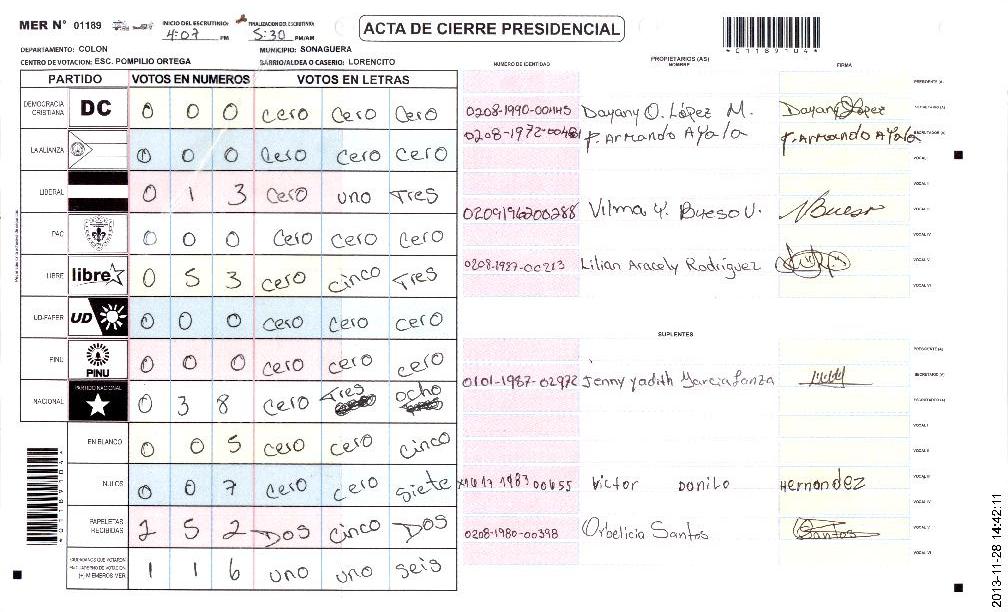 MER N° 01189 INICIO DEL ESCRUTINIO: 4:07 PM FINALIZACION DEL ESCRUTINIO: 5:30 PM/AM
ACTA DE CIERRE PRESIDENCIAL
*01189104*
DEPARTAMENTO: COLON MUNICIPIO: SONAGUERA
CENTRO DE VOTACION: ESC. POMPILIO ORTEGA BARRIO/ALDEA O CASERIO: LORENCITO
PARTIDO VOTOS EN NUMEROS VOTOS EN LETRAS
DEMOCRACIA CRISTIANA DC 0 0 0 cero cero cero
LA ALIANZA 0 0 0 cero cero cero
LIBERAL 0 1 3 cero uno Tres
PAC 0 0 0 cero cero cero
LIBRE libre 0 5 3 cero cinco Tres
UD-FAPER UD 0 0 0 cero cero cero
PINU PINU 0 0 0 cero cero cero
NACIONAL PARTIDO NACIONAL 0 3 8 cero Tres ocho
EN BLANCO 0 0 5 cero cero cinco
NULOS 0 0 7 cero cero siete
PAPELETAS RECIBIDAS 2 5 2 Dos cinco Dos
CIUDADANOS QUE VOTARON (+) MIEMBROS MER 1 1 6 uno uno seis
PROPIETARIOS (AS)
NUMERO DE IDENTIDAD NOMBRE FIRMA
PRESIDENTE (A)
0208-1990-00445 Dayany O. López M. Dayany López SECRETARIO (A)
0208-1972-00481 F. Armando Ayala F. Armando Ayala ESCRUTADOR (A)
VOCAL I
VOCAL II
0209196200288 Vilma Y. Bueso U. Bueso VOCAL III
VOCAL IV
0208-1987-00213 Lilian Aracely Rodríguez VOCAL V
VOCAL VI
SUPLENTES
PRESIDENTE (A)
0101-1987-02972 Jenny Yadith Garcia Lanza SECRETARIO (A)
ESCRUTADOR (A)
VOCAL I
VOCAL II
1983 00655 Victor Danilo Hernandez VOCAL III
VOCAL IV
0208-1980-00398 Orbelicia Santos Santos VOCAL V
VOCAL VI
2013-11-28 14:42:11